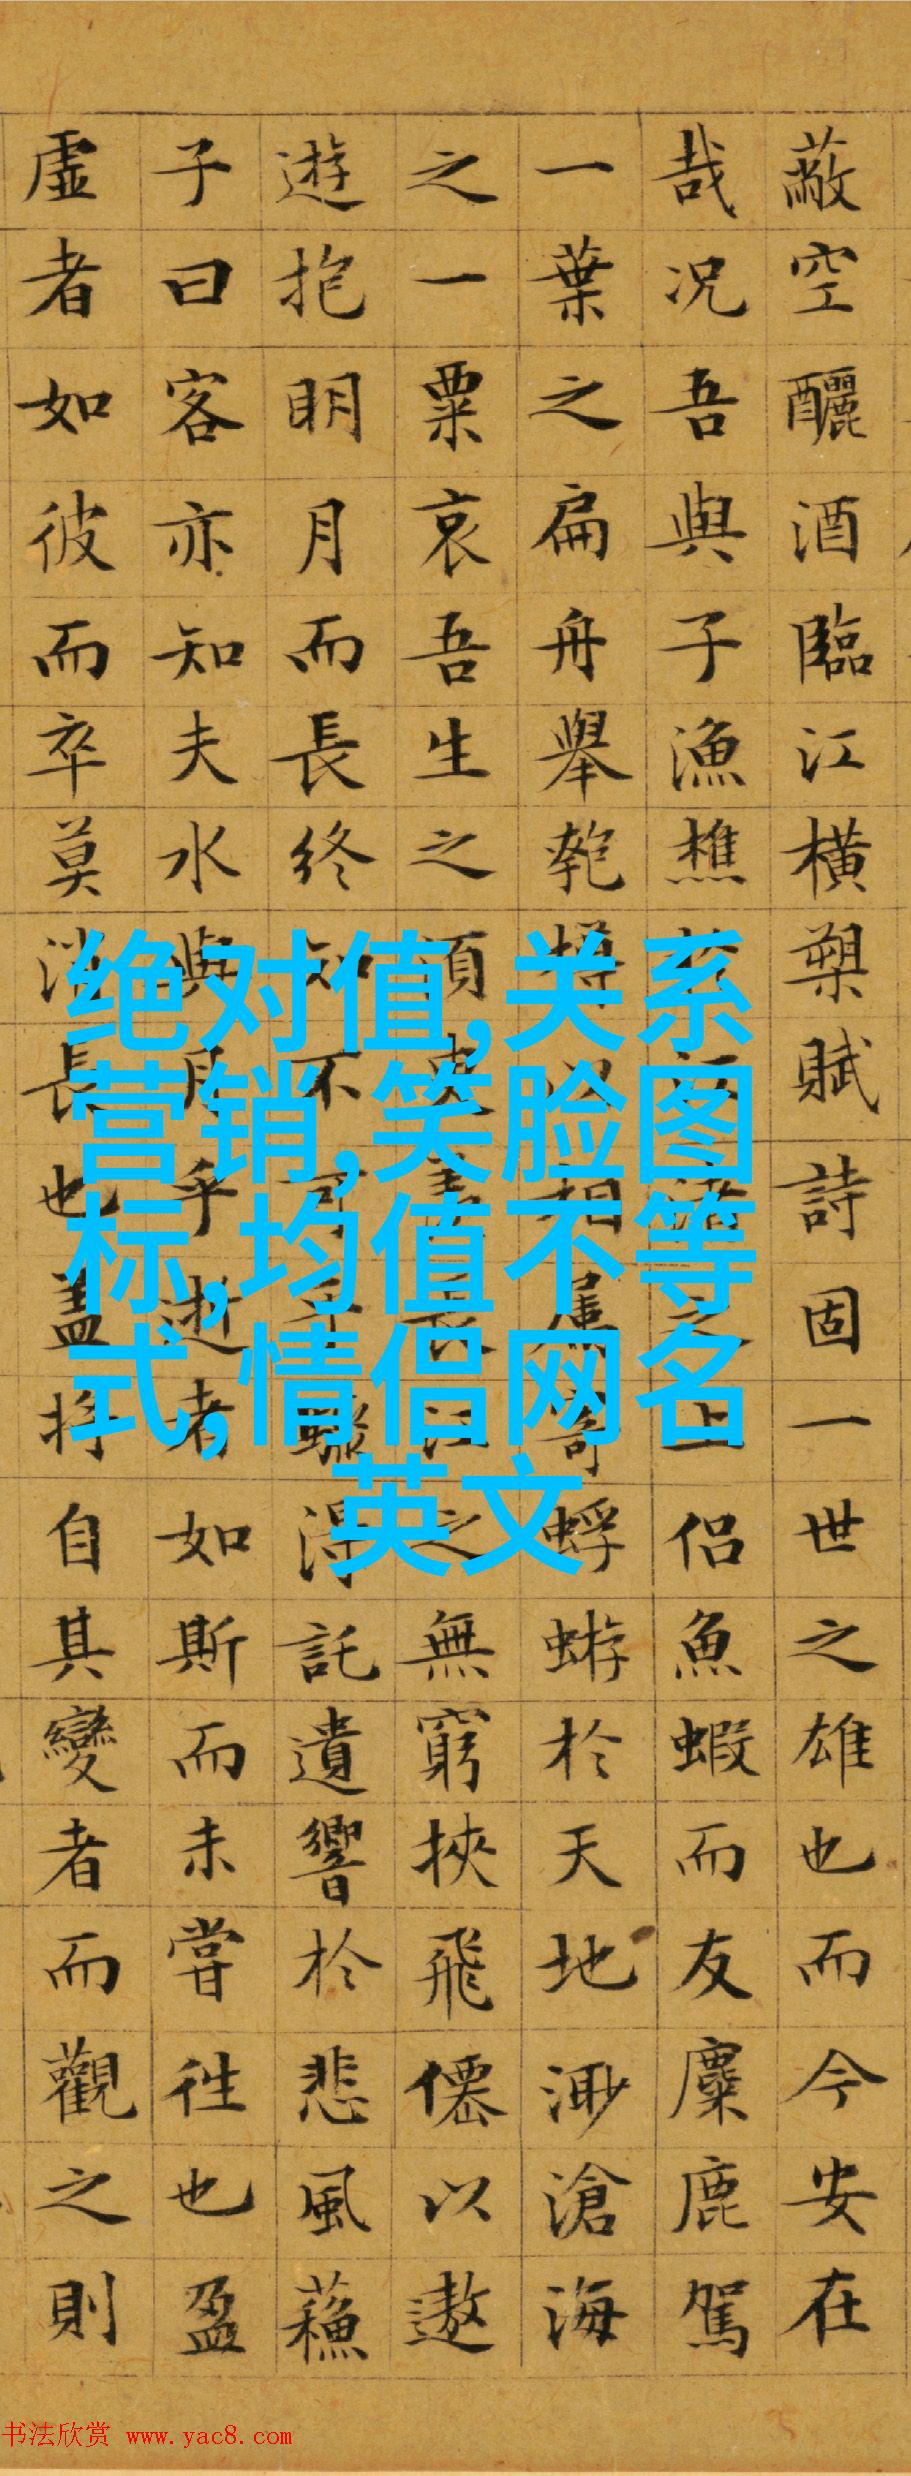 蔽空釃酒臨江橫槊賦詩固一世之雄也而今安在
哉况吾與子漁樵於江渚之上侶魚蝦而友麋鹿駕
一葉之扁舟舉匏樽以相屬寄蜉蝣於天地渺滄海
之一粟哀吾生之須臾羨長江之無窮挾飛僊以遨
遊抱明月而長終知不可乎驟得託遺響於悲風蘓
子曰客亦知夫水與月乎逝者如斯而未嘗徃也盈
虛者如彼而卒莫消長也盖將自其變者而觀之則
绝对值,关系
营销,笑脸图
标,均值不等
式,情侣网名
英文
书法欣赏 www.yac8.com